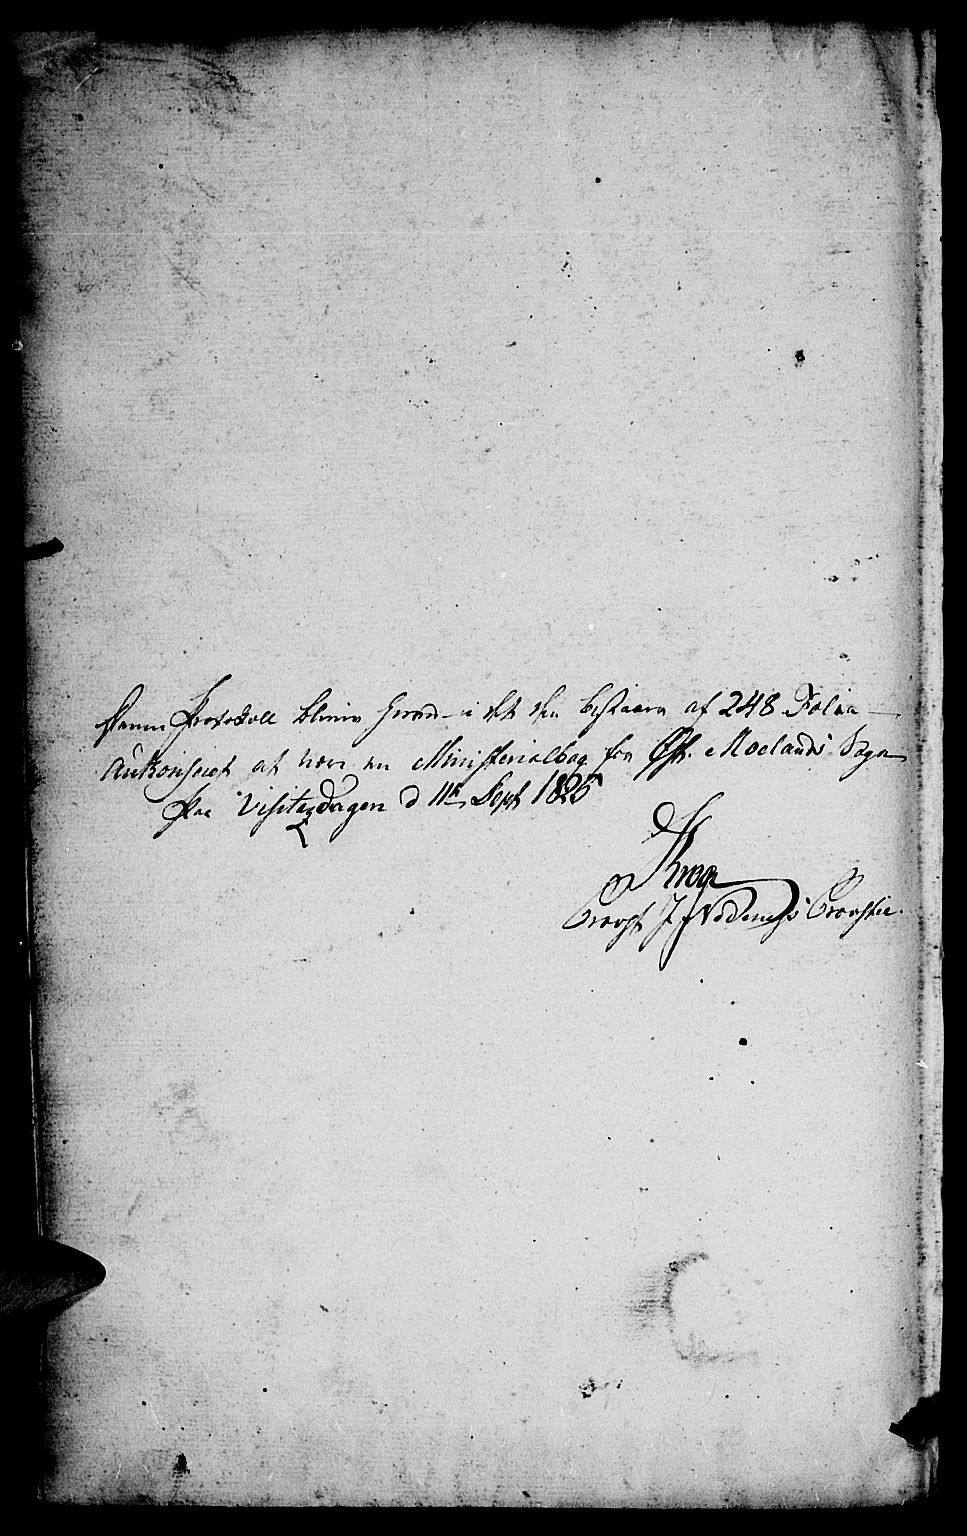 Denne Protokoll bliver herved i det den bestaaer af 248 Folia
Autoriseret at være en Ministerialbog for Øst. Moelands Sogn
paa Visitazdagen d 11te Sept 1825
Krog
Provst i Nedenæs Provstie.